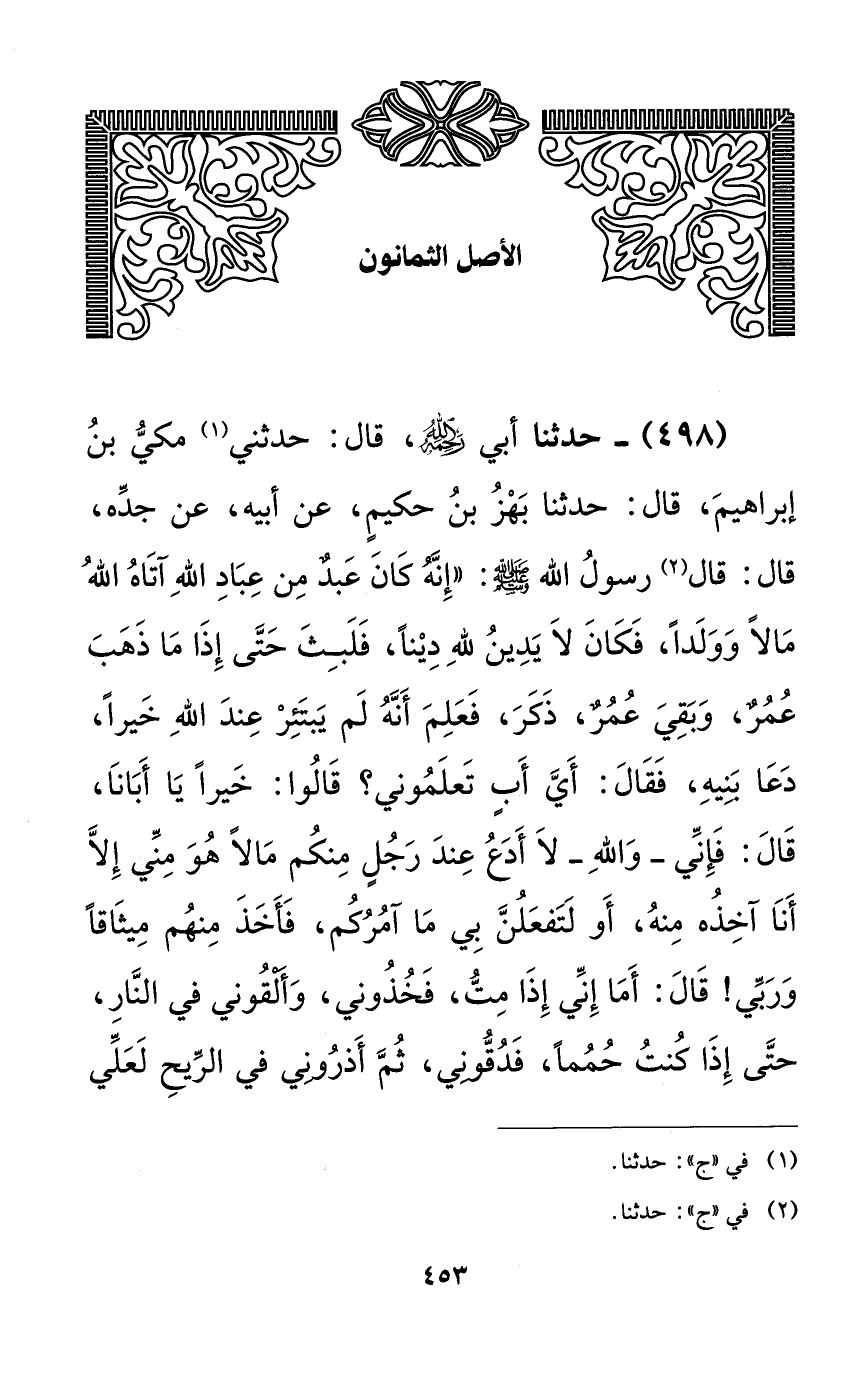 الأصل الثمانون
(٤٩٨) ـ حدثنا أبي رحمه الله، قال: حدثني(١) مكيُّ بنُ
إبراهيمَ، قال: حدثنا بَهْزُ بنُ حكيمٍ، عن أبيه، عن جدِّه،
قال: قال(٢) رسولُ الله ﷺ: «إِنَّهُ كَانَ عَبدٌ مِن عِبَادِ اللهِ آتَاهُ اللهُ
مَالاً وَوَلَداً، فَكَانَ لاَ يَدِينُ للهِ دِيْناً، فَلَبِثَ حَتَّى إِذَا مَا ذَهَبَ
عُمُرٌ، وَبَقِيَ عُمُرٌ، ذَكَرَ، فَعَلِمَ أَنَّهُ لَم يَبتَئِرْ عِندَ اللهِ خَيراً،
دَعَا بَنِيهِ، فَقَالَ: أَيَّ أَبٍ تَعلَمُوني؟ قَالُوا: خَيراً يَا أَبَانَا،
قَالَ: فَإِنِّي ـ وَاللهِ ـ لاَ أَدَعُ عِندَ رَجُلٍ مِنكُم مَالاً هُوَ مِنِّي إِلاَّ
أَنَا آخِذُه مِنهُ، أَو لَتَفعَلُنَّ بِي مَا آمُرُكُم، فَأَخَذَ مِنهُم مِيثَاقاً
وَرَبِّي! قَالَ: أَمَا إِنِّي إِذَا مِتُّ، فَخُذُوني، وَأَلْقُوني في النَّارِ،
حتَّى إِذَا كُنتُ حُمُماً، فَدُقُّونِي، ثُمَّ أَذرُونِي في الرِّيحِ لَعَلِّي
(١) في «ج»: حدثنا.
(٢) في «ج»: حدثنا.
٤٥٣